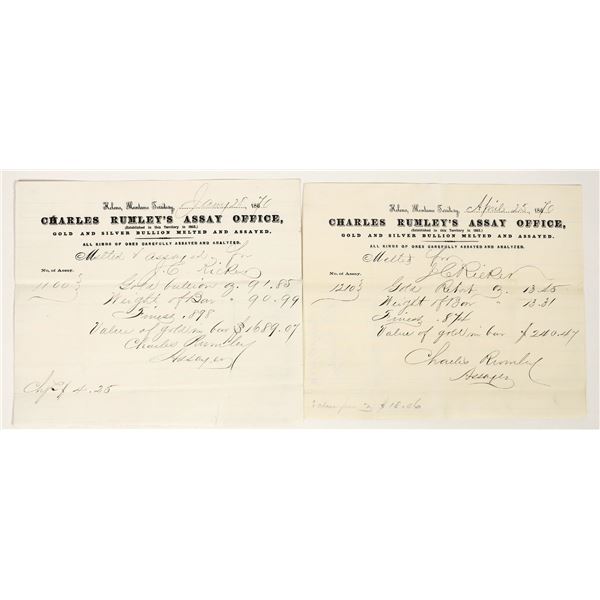 Helena, Montana Territory, Jany 28 1870
CHARLES RUMLEY'S ASSAY OFFICE,
(Established in this Territory in 1863.)
GOLD AND SILVER BULLION MELTED AND ASSAYED.
ALL KINDS OF ORES CAREFULLY ASSAYED AND ANALYZED.
Melted & Assayed for
J. C. Ricker
No. of Assay.
1100 Gold bullion oz 91.85
Weight of Bar " 90.99
Finess .898
Value of gold in bar $1689.07
Charles Rumley
Assayer
Chg 4.25
Helena, Montana Territory, April 25 1870
CHARLES RUMLEY'S ASSAY OFFICE,
(Established in this Territory in 1863.)
GOLD AND SILVER BULLION MELTED AND ASSAYED.
ALL KINDS OF ORES CAREFULLY ASSAYED AND ANALYZED.
Melted for
J C Ricker
No. of Assay.
1210 Gold Retort oz. 13.45
Weight of Bar " 13.31
Finess .874
Value of gold in bar $240.47
Charles Rumley
Assayer
per oz $18.06